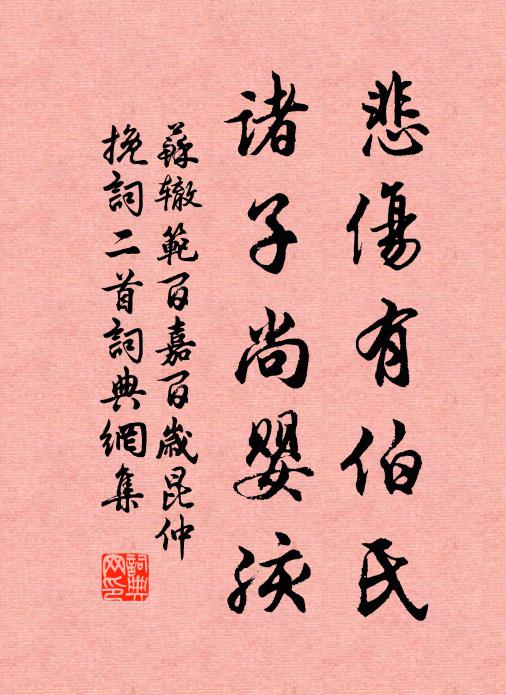 悲傷有伯氏
諸子尚嬰孩
蘇辙範百嘉百歲昆仲
挽詞二首詞典網集
詞典网印